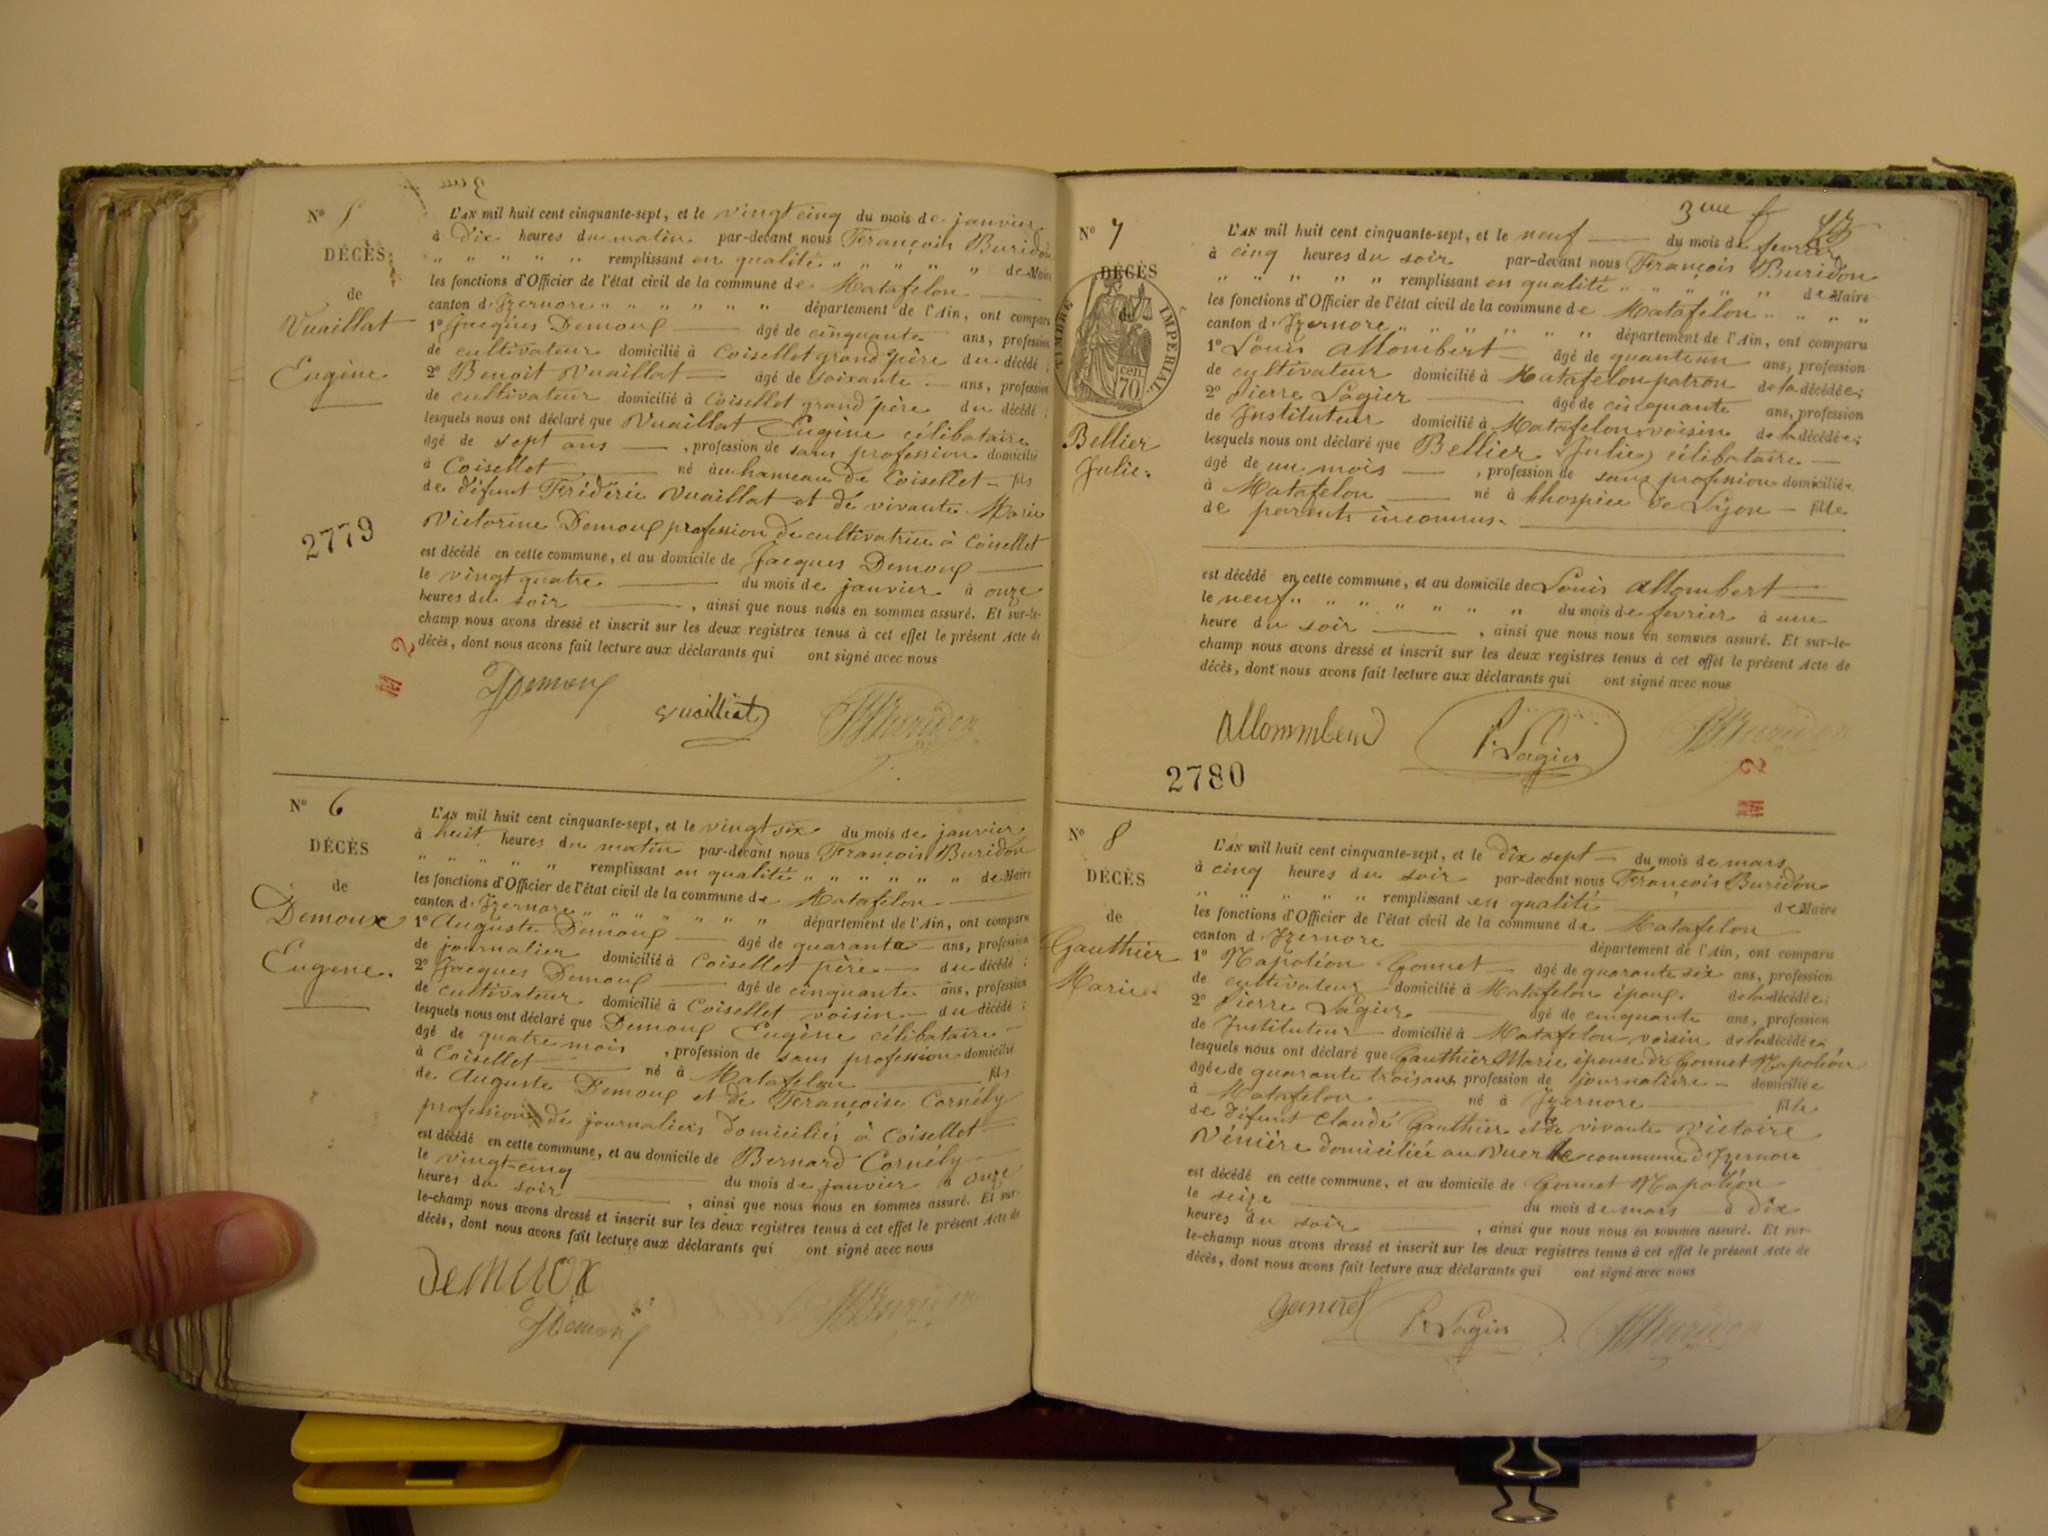 N° 5
DÉCÈS
de
Vuaillat
Eugène
2779
L'AN mil huit cent cinquante-sept, et le vingt cinq du mois de janvier
à dix heures du matin par-devant nous François Buridon
" " " " " remplissant en qualité " " " " " de Maire
les fonctions d'Officier de l'état civil de la commune de Matafelon
canton d'Izernore " " " " " " " département de l'Ain, ont comparu
1° Jacques Demoux âgé de cinquante ans, profession
de cultivateur domicilié à Coisellet grand père du décédé ;
2° Benoit Vuaillat âgé de soixante ans, profession
de cultivateur domicilié à Coisellet grand père du décédé ;
lesquels nous ont déclaré que Vuaillat Eugène célibataire
âgé de sept ans , profession de sans profession domicilié
à Coisellet né au hameau de Coisellet fils
de défunt Fridéric Vuaillat et de vivante Marie
Victorine Demoux profession de cultivatrice à Coisellet
est décédé en cette commune, et au domicile de Jacques Demoux
le vingt quatre du mois de janvier à onze
heures du soir , ainsi que nous nous en sommes assuré. Et sur-le-
champ nous avons dressé et inscrit sur les deux registres tenus à cet effet le présent Acte de
décès, dont nous avons fait lecture aux déclarants qui ont signé avec nous
JDemoux
Vuailliat
Buridon
M 2
N° 6
DÉCÈS
de
Demoux
Eugène.
L'AN mil huit cent cinquante-sept, et le vingt six du mois de janvier
à huit heures du matin par-devant nous François Buridon
" " " " " remplissant en qualité " " " " " " de Maire
les fonctions d'Officier de l'état civil de la commune de Matafelon
canton d'Izernore " " " " " " " " département de l'Ain, ont comparu
1° Auguste Demoux âgé de quarante ans, profession
de journalier domicilié à Coisellet père du décédé ;
2° Jacques Demoux âgé de cinquante ans, profession
de cultivateur domicilié à Coisellet voisin du décédé ;
lesquels nous ont déclaré que Demoux Eugène célibataire
âgé de quatre mois , profession de sans profession domicilié
à Coisellet né à Matafelon fils
de Auguste Demoux et de Françoise Cornély
profession de journaliers domiciliés à Coisellet
est décédé en cette commune, et au domicile de Bernard Cornély
le vingt-cinq du mois de janvier à onze
heures du soir , ainsi que nous nous en sommes assuré. Et sur-
le-champ nous avons dressé et inscrit sur les deux registres tenus à cet effet le présent Acte de
décès, dont nous avons fait lecture aux déclarants qui ont signé avec nous
Demuox
JDemoux
Buridon
3me f
N° 7
DÉCÈS
de
TIMBRE IMPÉRIAL
70 cen.
Bellier
Julie.
L'AN mil huit cent cinquante-sept, et le neuf du mois de fevrier
à cinq heures du soir par-devant nous François Buridon
" " " " " remplissant en qualité " " " " " de Maire
les fonctions d'Officier de l'état civil de la commune de Matafelon " " " "
canton d'Izernore " " " " " " " département de l'Ain, ont comparu
1° Louis Allombert âgé de quante un ans, profession
de cultivateur domicilié à Matafelon patron de la décédée ;
2° Pierre Lagier âgé de cincquante ans, profession
de Instituteur domicilié à Matafelon voisin de la décédée ;
lesquels nous ont déclaré que Bellier (Julie) célibataire
âgé de un mois , profession de sans profession domiciliée
à Matafelon né à l'hospice de Lyon fille
de parents inconnus.
est décédé en cette commune, et au domicile de Louis Allombert
le neuf " " " " " " " du mois de fevrier à une
heure du soir , ainsi que nous nous en sommes assuré. Et sur-le-
champ nous avons dressé et inscrit sur les deux registres tenus à cet effet le présent Acte de
décès, dont nous avons fait lecture aux déclarants qui ont signé avec nous
P. Lagier
Buridon
2780
M 2
N° 8
DÉCÈS
de
Gauthier
Marie.
L'AN mil huit cent cinquante-sept, et le dix sept du mois de mars
à cinq heures du soir par-devant nous François Buridon
" " " " remplissant en qualité de Maire
les fonctions d'Officier de l'état civil de la commune de Matafelon
canton d'Izernore département de l'Ain, ont comparu
1° Napoléon Gonnet âgé de quarante six ans, profession
de cultivateur domicilié à Matafelon époux de la décédée ;
2° Pierre Lagier âgé de cinquante ans, profession
de Instituteur domicilié à Matafelon voisin de la décédée ;
lesquels nous ont déclaré que Gauthier Marie épouse de Gonnet Napoléon
âgée de quarante trois ans, profession de journalière domiciliée
à Matafelon né à Izernore fille
de défunt Claude Gauthier et de vivante Victoire
Vénière domiciliée au Vuerle commune d'Izernore
est décédé en cette commune, et au domicile de Gonnet Napoléon
le seize du mois de mars à dix
heures du soir , ainsi que nous nous en sommes assuré. Et sur-
le-champ nous avons dressé et inscrit sur les deux registres tenus à cet effet le présent Acte de
décès, dont nous avons fait lecture aux déclarants qui ont signé avec nous
P. Lagier
Buridon